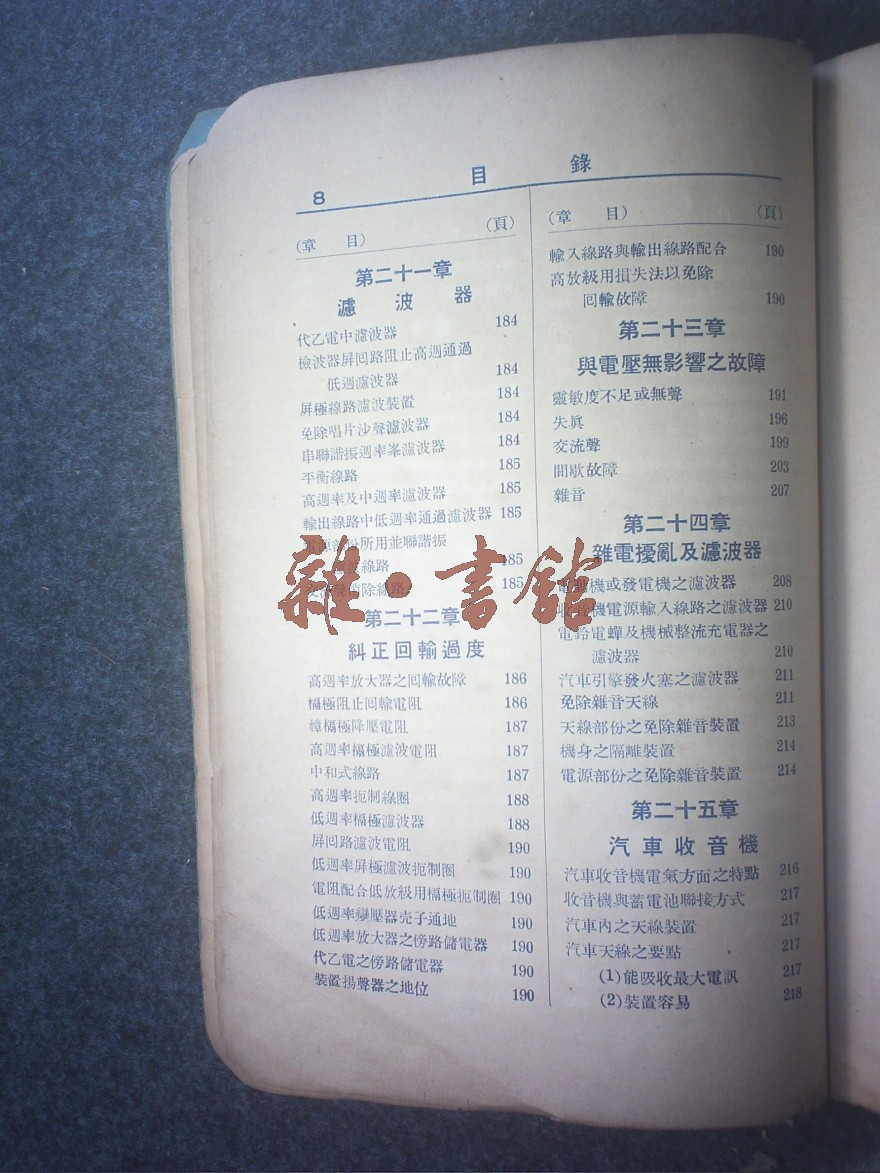 8
目 錄
(章 目) (頁)
第二十一章
濾波器
代乙電中濾波器 184
檢波器屏回路阻止高週通過
低週濾波器 184
屏極線路濾波裝置 184
免除唱片沙聲濾波器 184
串聯諧振週率峯濾波器 184
平衡線路 185
高週率及中週率濾波器 185
輸出線路中低週率通過濾波器 185
所用並聯諧振
線路 185
除線 185
第二十二章
糾正回輸過度
高週率放大器之回輸故障 186
槅極阻止回輸電阻 186
幛槅極降壓電阻 187
高週率槅極濾波電阻 187
中和式線路 187
高週率扼制線圈 188
低週率槅極濾波器 188
屏回路濾波電阻 190
低週率屏極濾波扼制圈 190
電阻配合低放級用槅極扼制圈 190
低週率變壓器壳子通地 190
低週率放大器之傍路儲電器 190
代乙電之傍路儲電器 190
裝置揚聲器之地位 190
(章 目) (頁)
輸入線路與輸出線路配合 190
高放級用損失法以免除
回輸故障 190
第二十三章
與電壓無影響之故障
靈敏度不足或無聲 191
失眞 196
交流聲 199
間歇故障 203
雜音 207
第二十四章
雜電擾亂及濾波器
機或發電機之濾波器 208
收音機電源輸入線路之濾波器 210
電鈴電蟬及機械整流充電器之
濾波器 210
汽車引擎發火塞之濾波器 211
免除雜音天線 211
天線部份之免除雜音裝置 213
機身之隔離裝置 214
電源部份之免除雜音裝置 214
第二十五章
汽車收音機
汽車收音機電氣方面之特點 216
收音機與蓄電池聯接方式 217
汽車內之天線裝置 217
汽車天線之要點 217
(1)能吸收最大電訊 217
(2)裝置容易 218
雜·書館